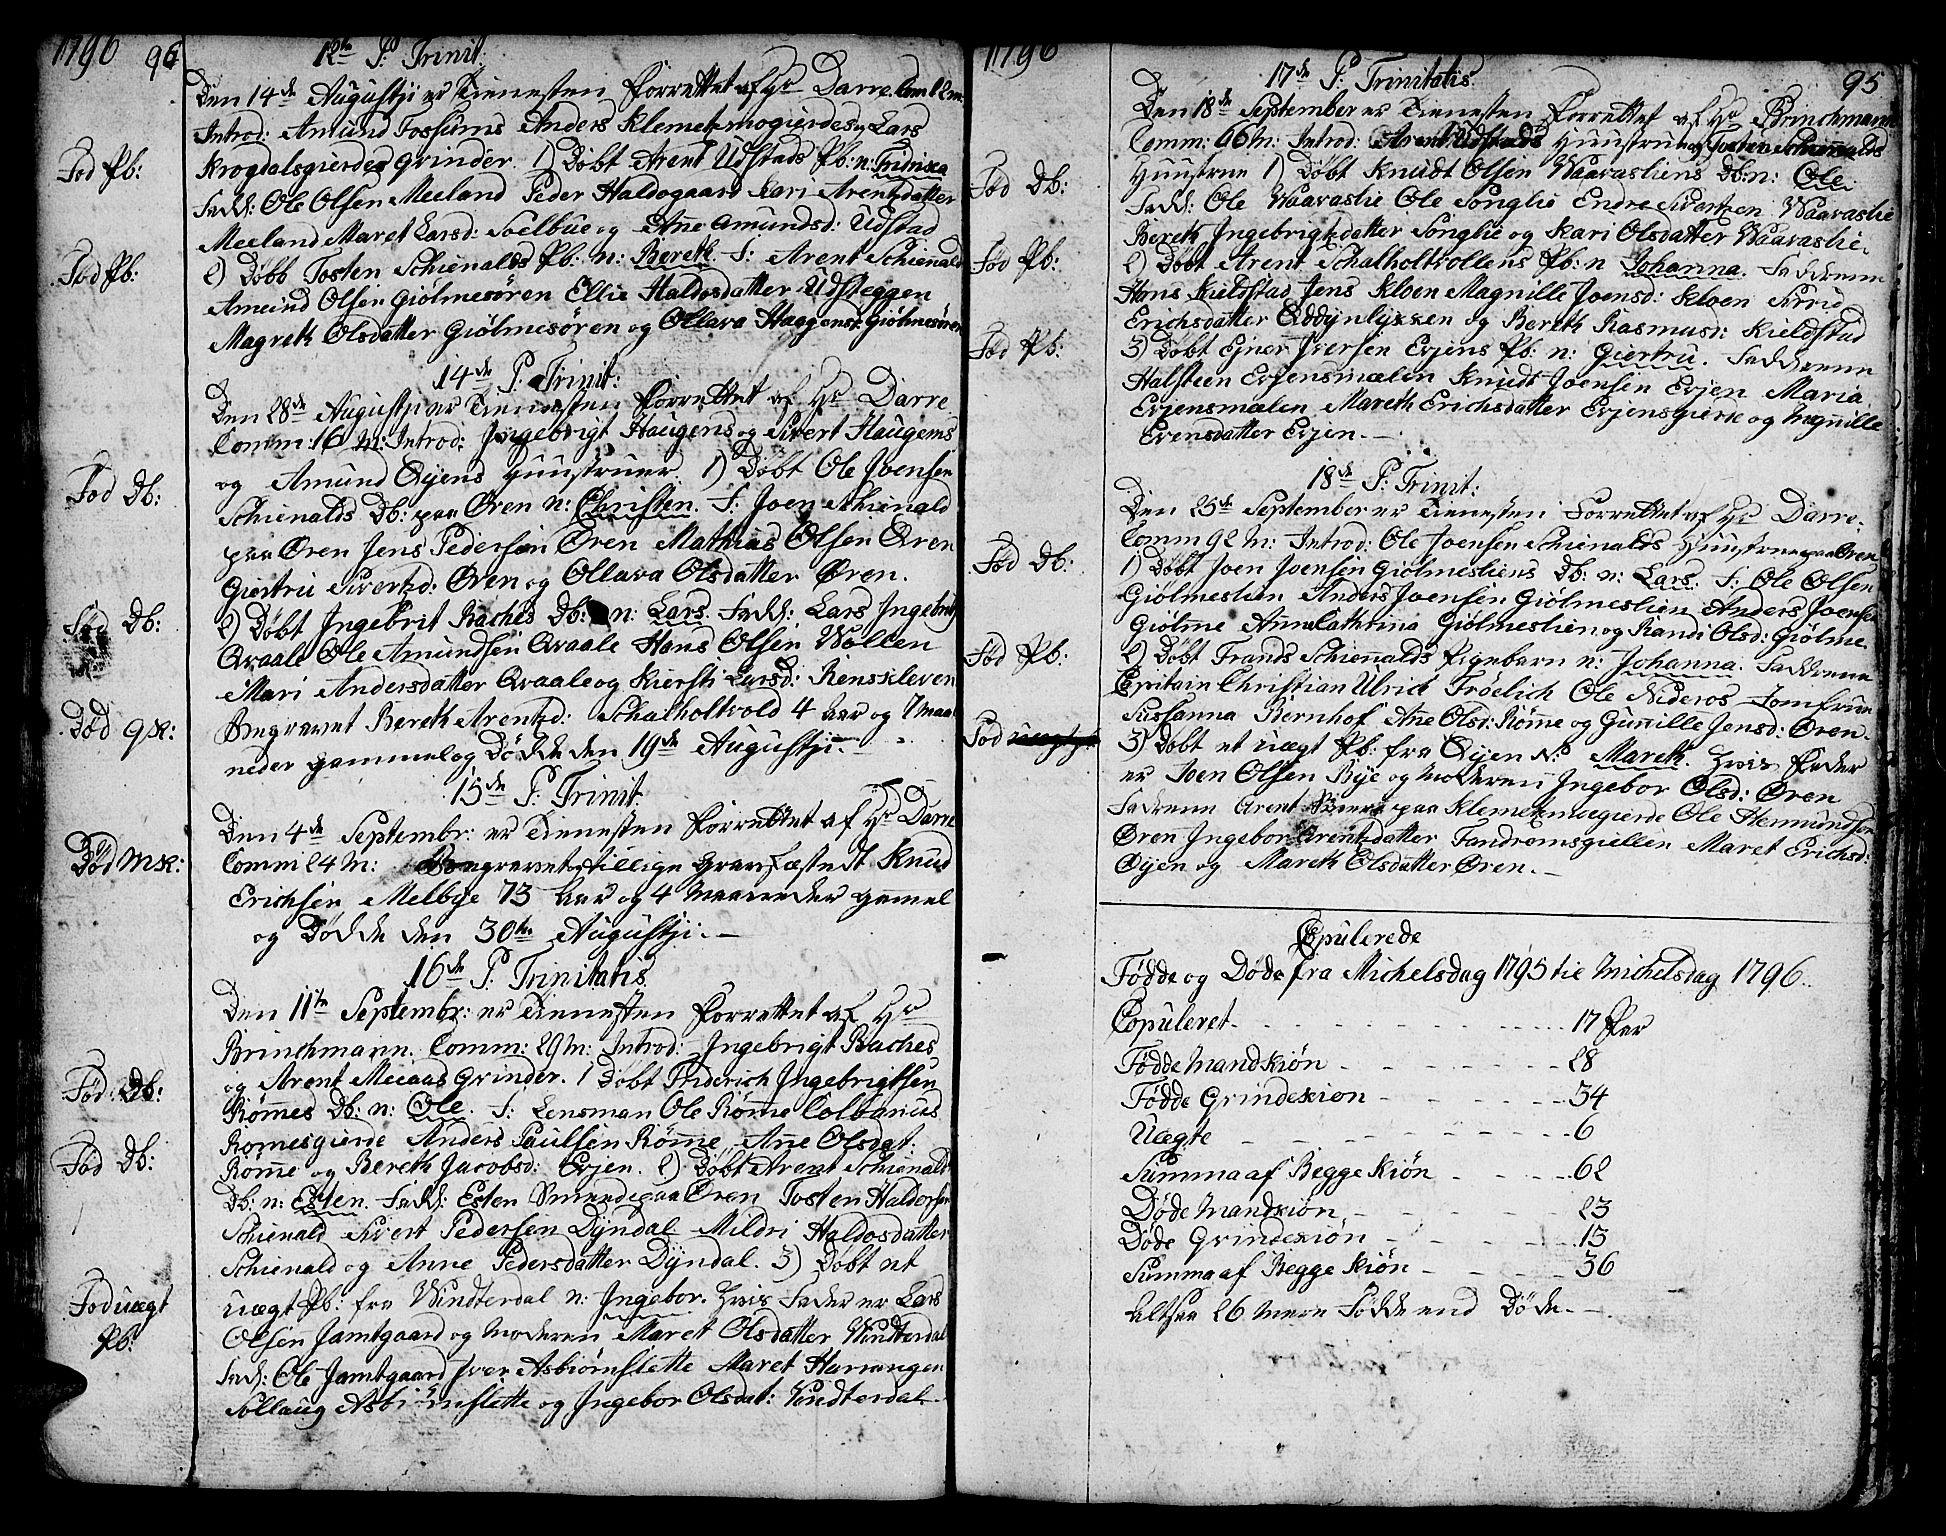 1796 96
12te P: Trinit:
Den 14de Augustji er Tienesten forrettet af Hr Darre Com 12 m:
Introd: Amund Fossums Anders Klemetsmogierdes og Lars
Krogdalsgierdes qvinder. 1) Døbt Arent Udstads Pb: n: Fridrica
Fadd: Ole Olsen Meeland Peder Haldogaard Kari Arentzdatter
Meeland Maret Larsd: Soelbue og Ane Amundsd: Udstad
2) Døbt Tosten Schienalds Pb: n: Bereth F: Arent Schienald
Amund Olsen Giølmesøren Ellie Haldosdatter Udsteggen
Magreth Olsdatter Giølmesøren og Ollava Haagensd: Giølmesøren
Fød Pb:
Fød Pb:
14de P: Trinit:
Den 28de Augustji er Tienesten forrettet af Hr Darre
Comm: 16 M: Introd: Ingebrigt Haugens og Sivert Haugens
og Amund Øyens Huustruer. 1) Døbt Ole Joensen
Schienalds Db: paa Øren n: Christen. F: Joen Schienald
paa Øren Jens Pedersen Øren Mathias Olsen Øren
Giertru Sivertzd: Øren og Ollava Olsdatter Øren.
2) Døbt Ingebrit Raches Db: n: Lars. Fadd: Lars Ingebrit
Qvaale Ole Amundsen Qvaale Hans Olsen Wollen
Mari Andersdatter Qvaale og Kiersti Larsd: Rensskleven
Begravet Bereth Arentzd: Schalholtvold 4 Aar og 7 Maa-
neder gammel og Døde den 19de Augustji.
Fød Db:
Fød Db:
Død qk:
15de P: Trinit.
Den 4de Septembr: er Tienesten forrettet af Hr Darre
Comm: 24 M: Begravet tillige Gravfæstedt Knud
Erichsen Melbye 73 Aar og 4 Maaneder gamel
og Døde den 30te Augustji.
Død MK:
16de P: Trinitatis
Den 11te Septembr: er Tienesten forrettet af Hr
Brinchmann. Comm: 29 M: Introd: Ingebrigt Raches
og Arent Meeaas qvinder. 1 Døbt Friderich Ingebrigtsen
Rømmes Db: n: Ole. F: Lensman Ole Rømme Colbanus
Romesgierde Anders Paulsen Rømme Ane Olsdat:
Rømme og Bereth Jacobsd: Evjen. 2) Døbt Arent Schienalds
Db: n: Esten. Fadd: Esten Smeende paa Øren Tosten Haldorsen
Schienald Sivert Pedersen Dyndal Mildri Haldosdatter
Schienald og Anne Pedersdatter Dyndal. 3) Døbt et
uægt Pb: fra Windterdal n: Ingebor. Hvis Fader er Lars
Olsen Jamtgaard og Moderen Maret Olsdatter Windterdal
Fad: Ole Jamtgaard Iver Asbiørnslette Maret Harrangen
Sollaug Asbiørnslette og Ingebor Olsdat: Windterdal
Fød: Db:
Fød Db:
Fød uægt
Pb:
1796
95
17de P: Trinitatis
Den 18de September er Tienesten forrettet af Hr Brinchmann
Comm: 66 M: Introd: Arent Udstads Huustrue og Tosten Schienalds
Huustrue 1) Døbt Knudt Olsen Waavasliens Db: n: Ole.
Fadd: Ole Waavaslie Ole Songlie Endre Sivertzen Waavaslie
Bereth Ingebrigtzdatter Songlie og Kari Olsdatter Waavaslie.
2) Døbt Arent Schalholtvollens Pb: n Johanna. Fadderne
Hans Kieldstad Jens Kloen Magnille Joensd: Kloen Sirrie
Erichsdatter Oddynlykken og Bereth Rasmusd: Kieldstad
3) Døbt Ejner Iversen Evjens Pb: n: Giertru. Fadderne
Halsteen Evjensmælen Knudt Joensen Evjen Maria
Evjensmælen Mareth Erichsdatter Evjensgierde og Magnille
Evensdatter Evjen.
Fød Db:
Fød Pb:
Fød Pb:
18de P: Trinit:
Den 25de September er Tienesten Forrettet af Hr Darre.
Comm 92 M: Introd: Ole Joensen Schienalds Huustrue paa Øren
1) Døbt Joen Joensen Giølmesliens Db: n: Lars. F: Ole Olsen
Giølmeslien Anders Joensen Giølmeslien Anders Joensen
Giølme Ane Cathrina Giølmeslien og Randi Olsd: Giølme
2) Døbt Frands Schienalds Pigebarn n: Johanna. Fadderne
Capitain Christian Ulrich Frøelich Ole Nideros Jomfrue
Sussanna Bernhof Ane Olsd: Rømme og Gunille Jensd: Øren.
3) Døbt et uægt Pb: fra Øyen N: Mareth. Hvis Fader
er Joen Olsen Bye og Moderen Ingebor Olsd: Øren
Faderne Arent paa Klemetzmogierde Ole Hermundsen
Øren Ingebor Arentzdatter Fandremsgiellen Maret Erichsd:
Øyen og Mareth Olsdatter Øren.
Fød Db:
Fød Pb:
Fød uægt
Copulerede
Fødde og Døde fra Michelsdag 1795 til Michelsdag 1796.
Copuleret 17 Par
Fødde Mandkiøn 28
Fødde Qvindekiøn 34
Uægte 6
Summa af Begge Kiøn 62
Døde Mandkiøn 23
Døde Qvindekiøn 13
Summa af Begge Kiøn 36
Altsaa 26 mere Fødde end Døde.